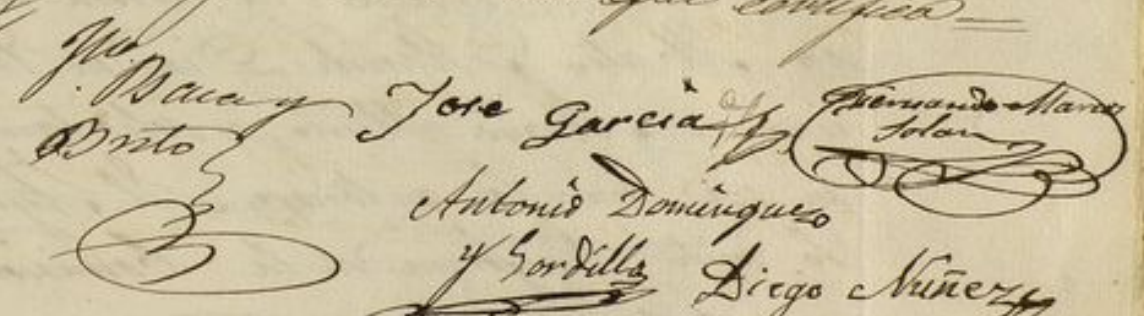 que certifica
Baca y
Brito
Jose Garcia
Fernando
Solan
Antonio Dominguez
y Gordillo
Diego Nuñez